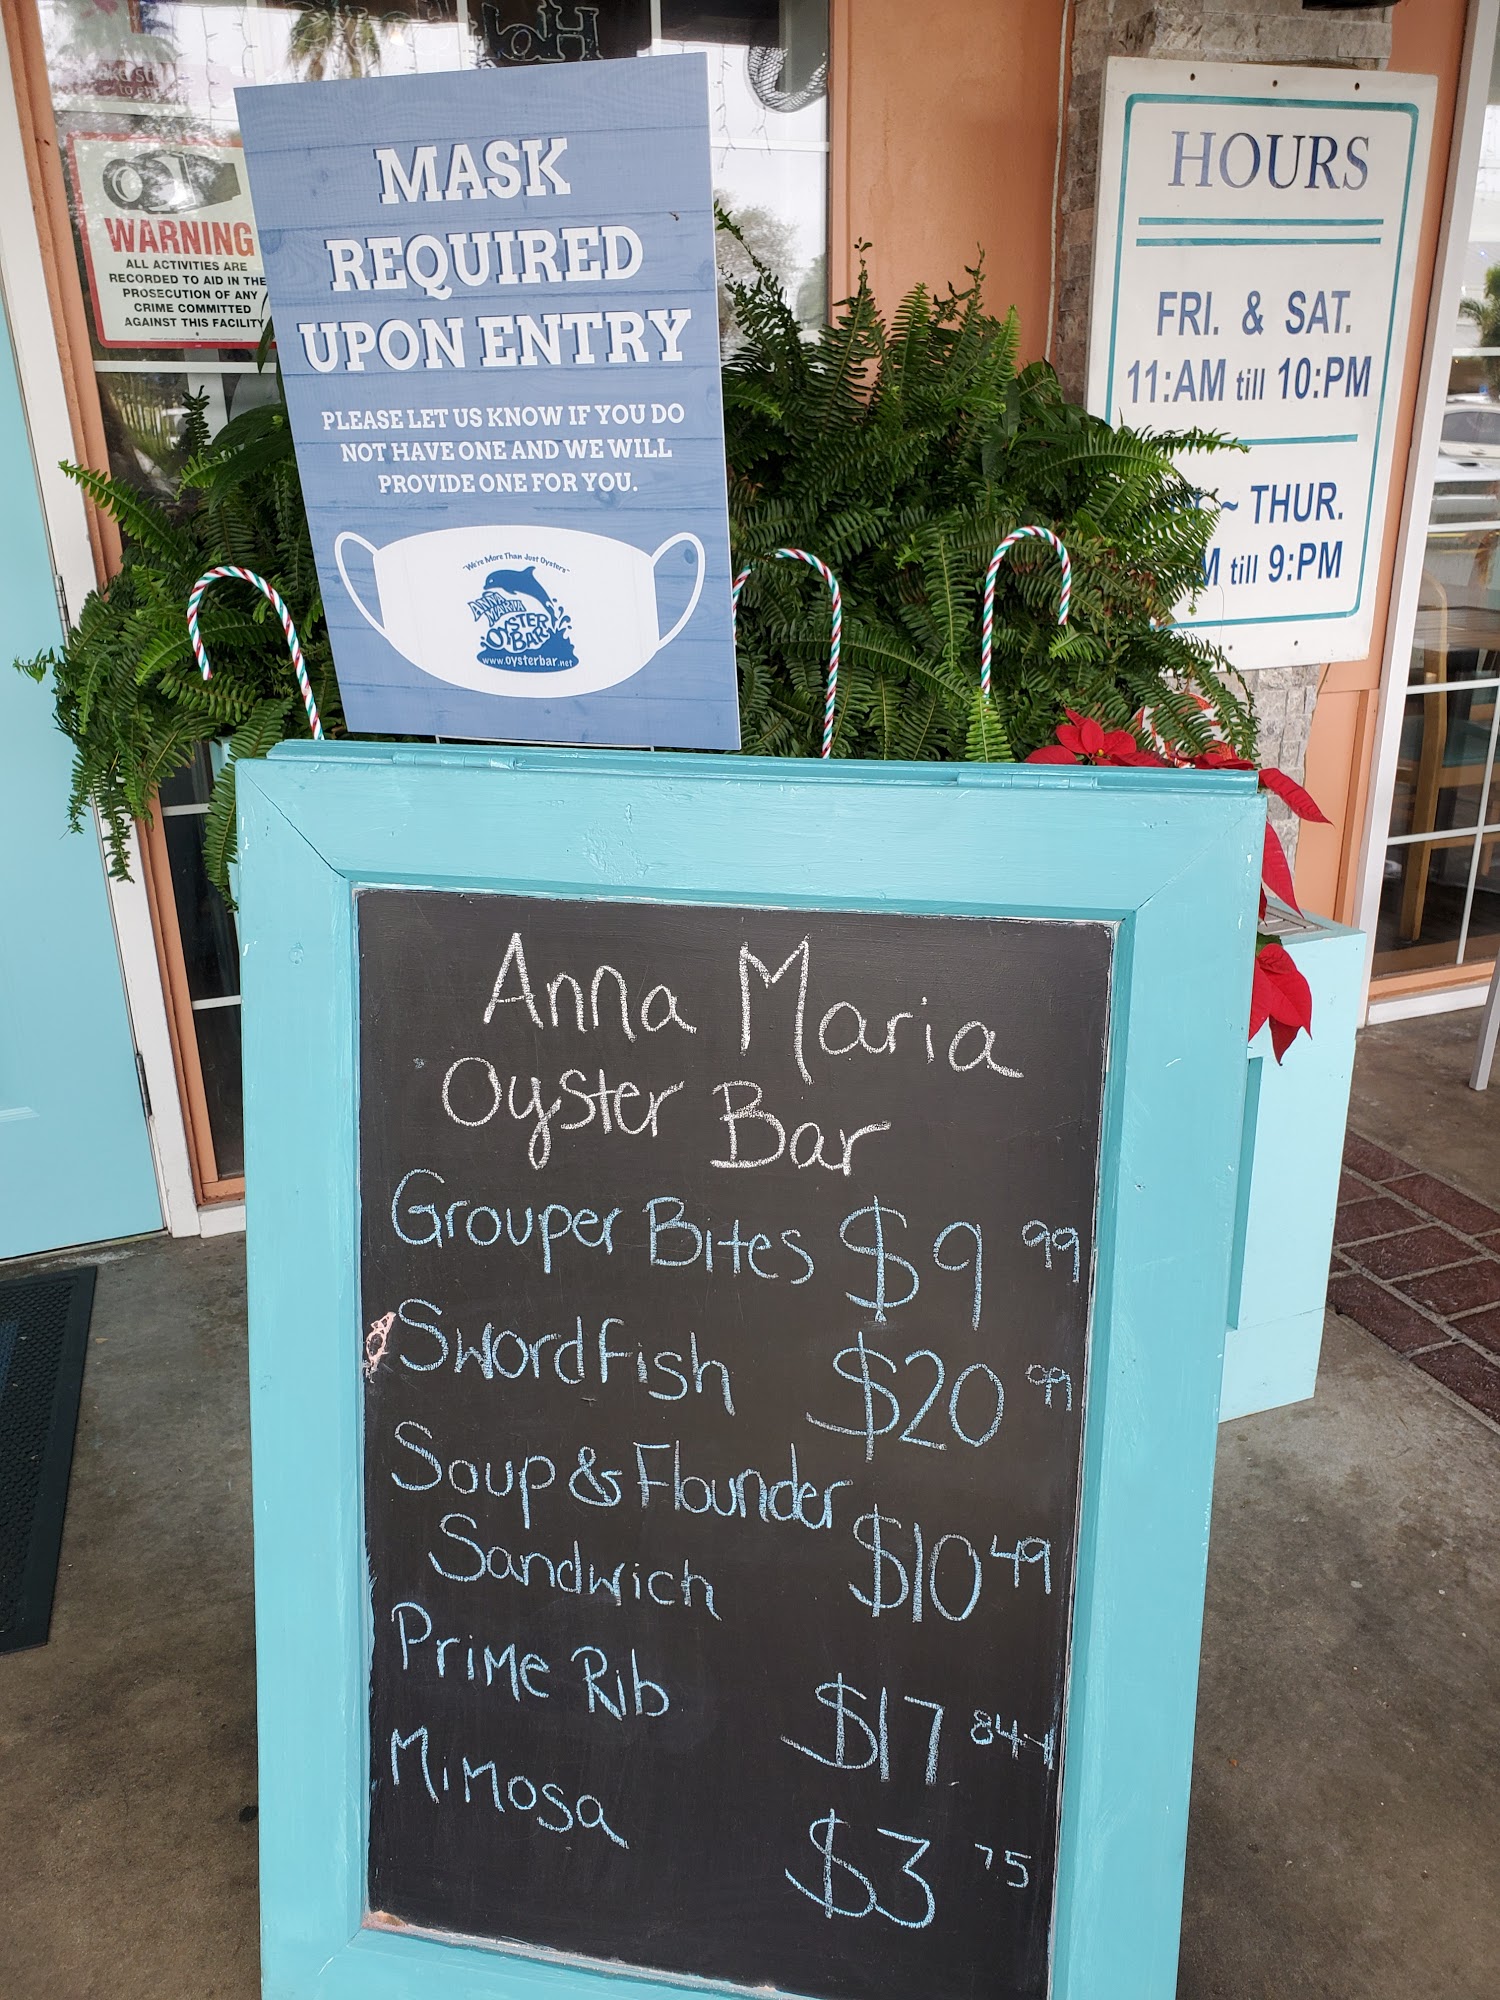 MASK
REQUIRED
UPON ENTRY
PLEASE LET US KNOW IF YOU DO
NOT HAVE ONE AND WE WILL
PROVIDE ONE FOR YOU.
"We're More Than Just Oysters"
ANNA
MARIA
OYSTER
BAR
www.oysterbar.net
WARNING
ALL ACTIVITIES ARE
RECORDED TO AID IN THE
PROSECUTION OF ANY
CRIME COMMITTED
AGAINST THIS FACILITY
HOURS
FRI. & SAT.
11:AM till 10:PM
~ THUR.
till 9:PM
Anna Maria
Oyster Bar
Grouper Bites $9 99
Swordfish $20 99
Soup & Flounder
Sandwich $10 49
Prime Rib $17
Mimosa $3 75